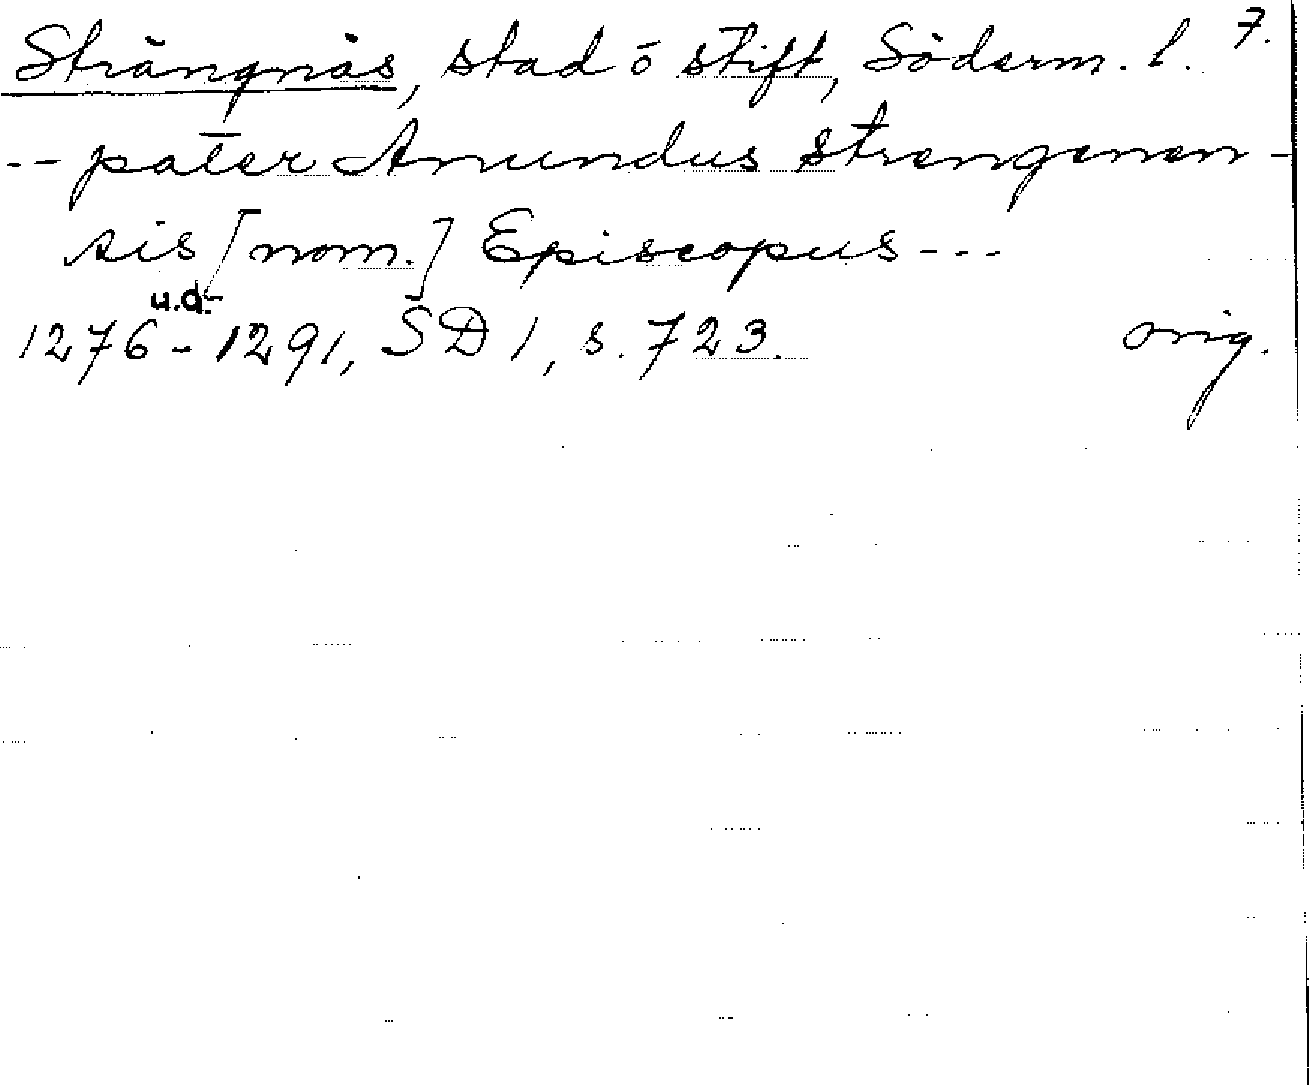 Strängnäs, stad o stift, Söderm. l. 7.
-- pater Amundus strengenen-
sis [nom.] Episcopus ---
u.d.
1276-1291, SD 1, s. 723. orig.